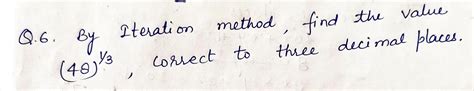 Q.6. By Iteration method, find the value
(48)^1/3, correct to three decimal places.